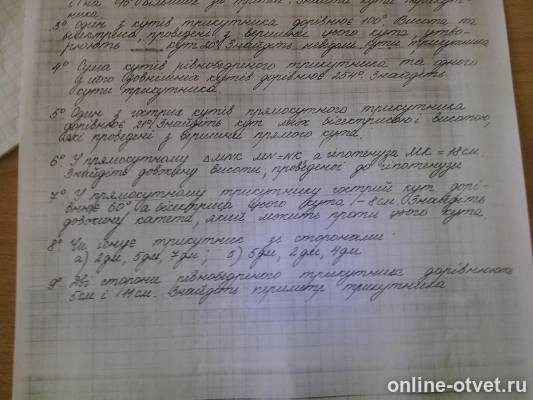 3° Один з кутів трикутника дорівнює 100°. Висота та
бісектриса, проведені з вершини цього кута, утво-
рюють кут 20°. Знайдіть невідомі кути трикутника
4° Сума кутів рівнобедреного трикутника та одного
з його зовнішніх кутів дорівнює 254°. Знайдіть
кути трикутника.
5° Один з гострих кутів прямокутного трикутника
дорівнює 21°. Знайдіть кут між бісектрисою і висотою,
які проведені з вершини прямого кута.
6° У прямокутному ΔMNK MN=NK, а гіпотенуза MK = 18 см.
Знайдіть довжину висоти, проведеної до гіпотенузи
7° У прямокутному трикутнику гострий кут дорі-
внює 60°, а бісектриса цього кута - 8 см. Знайдіть
довжину катета, який лежить проти цього кута
8° Чи існує трикутник зі сторонами:
а) 2дм, 5дм, 7дм; б) 5дм, 2дм, 4дм
9° Дві сторони рівнобедреного трикутника дорівнюють
5см і 11см. Знайдіть периметр трикутника
online-otvet.ru